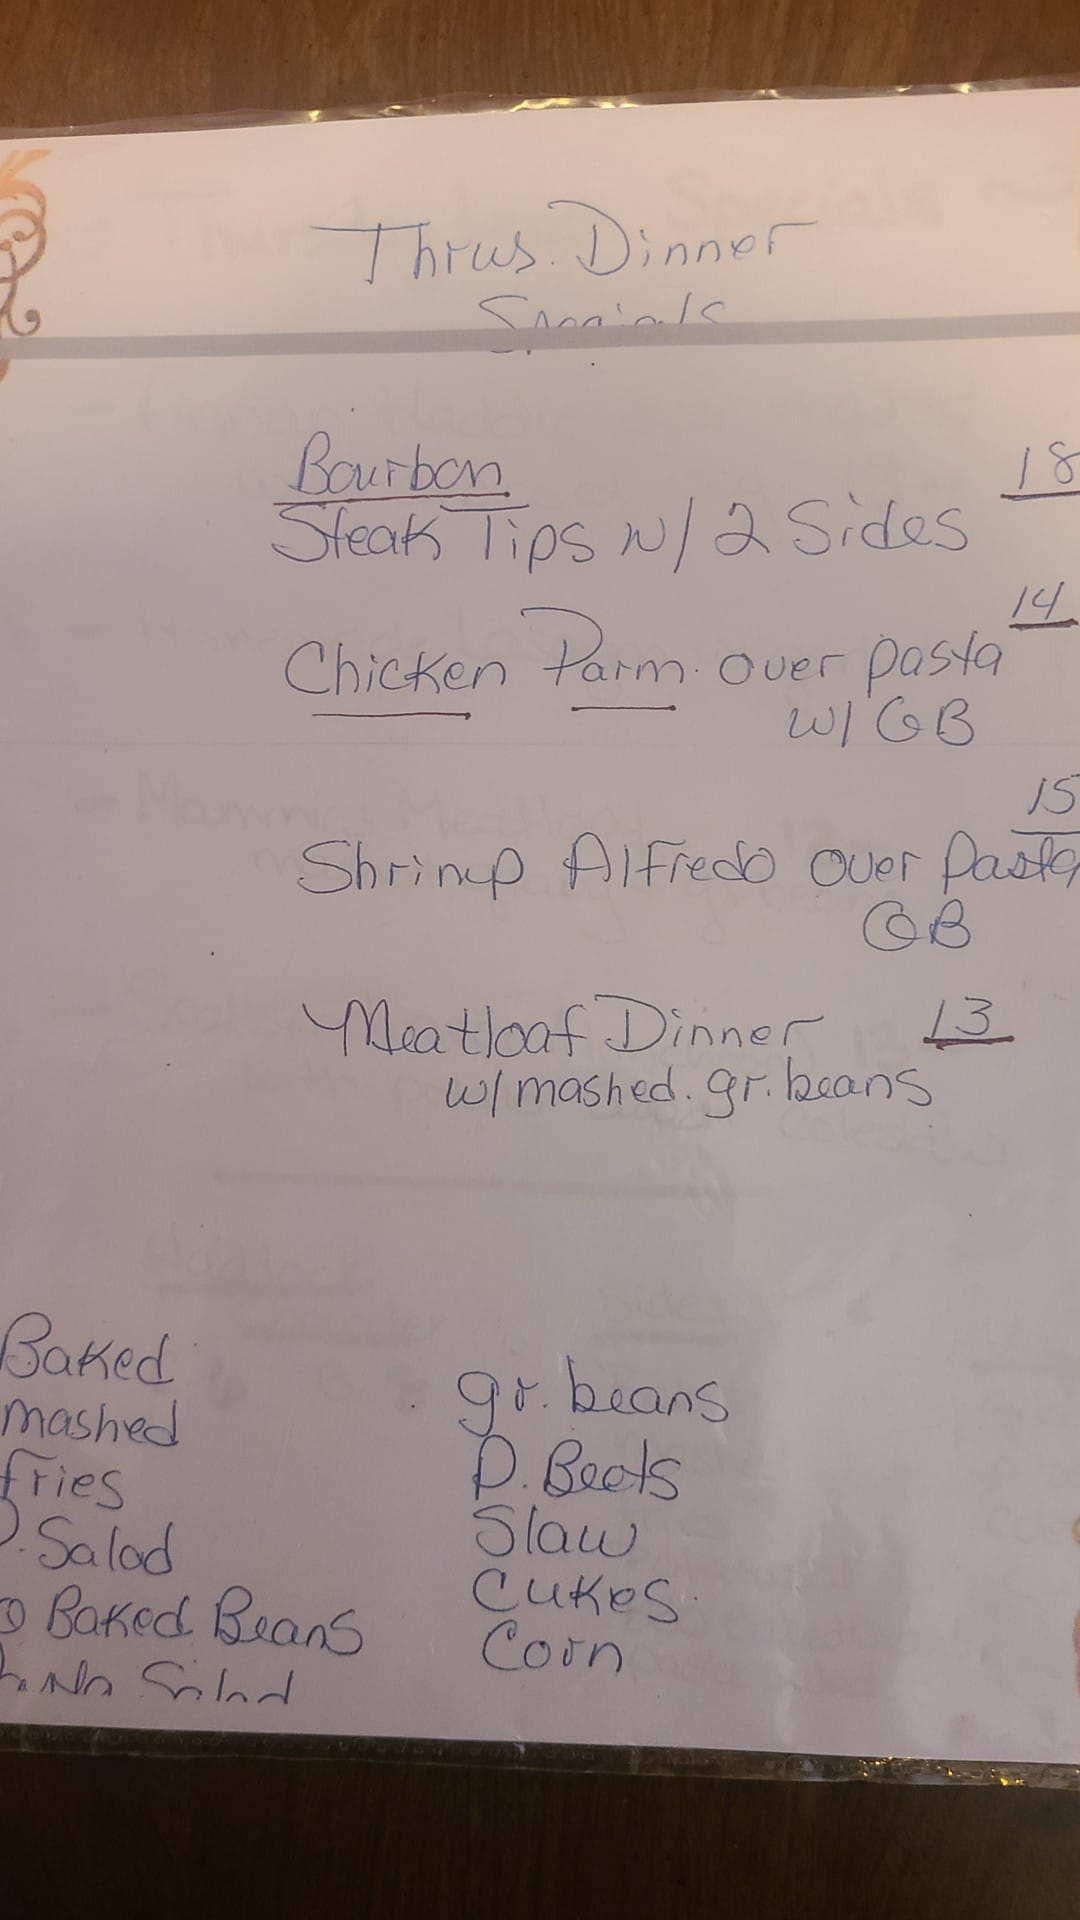 Thrus. Dinner
Specials
Bourbon 18
Steak Tips w/ 2 Sides
14
Chicken Parm. over pasta
w/ GB
15
Shrimp Alfredo over Pasta
GB
Meatloaf Dinner 13
w/ mashed. gr. beans
Baked
mashed
fries
. Salad
Baked Beans
Salad
gr. beans
P. Beets
Slaw
Cukes
Corn